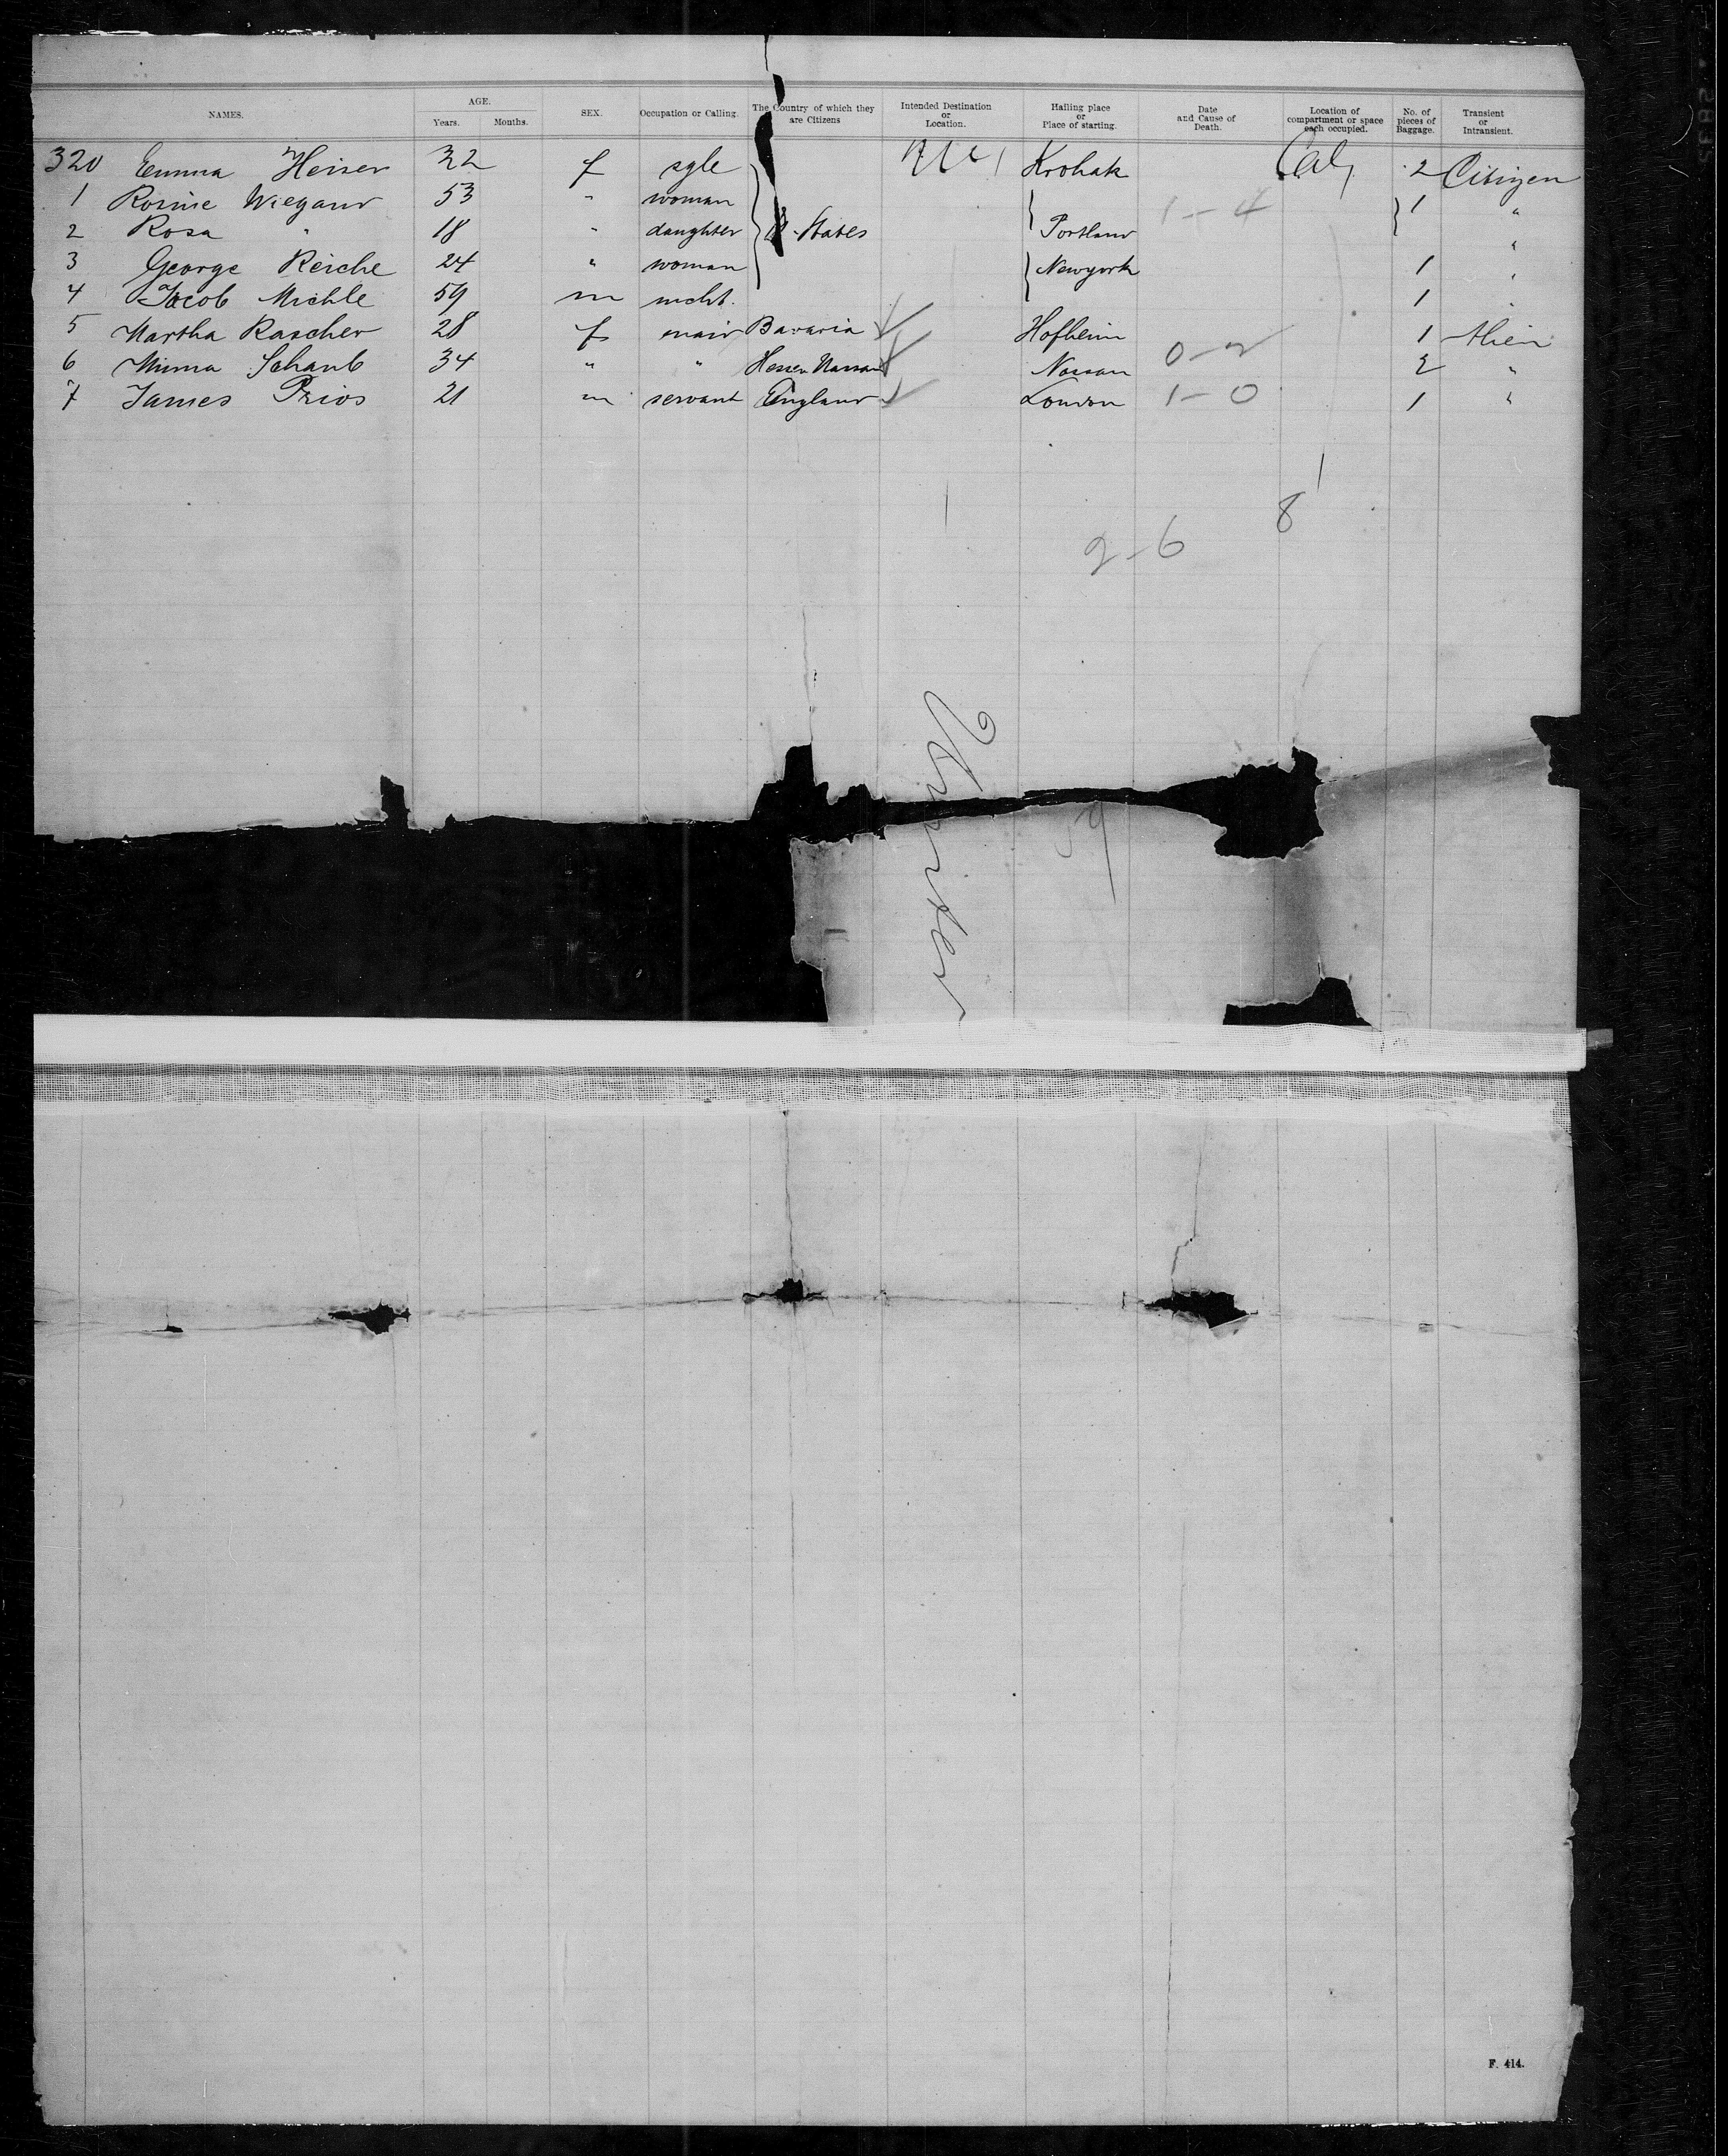 NAMES. AGE. Years. Months. SEX. Occupation or Calling. The Country of which they are Citizens Intended Destination or Location. Hailing place or Place of starting. Date and Cause of Death. Location of compartment or space each occupied. No. of pieces of Baggage. Transient or Intransient.
320 Emma Heiser 32 f sgle Krohak Cab, 2 Citizen
1 Rosine Wiegand 53 " woman 1 "
2 Rosa " 18 " daughter U. States Portland 1-4 "
3 George Reiche 24 " woman Newyork 1 "
4 Jacob Michle 59 m mcht. 1 "
5 Martha Rascher 28 f maid Bavaria Hofheim 1 Alien
6 Minna Schaub 34 " " Hessen Nassau Nassau 0-2 2 "
7 James Prios 21 m servant England London 1-0 1 "
8
2-6
F. 414.